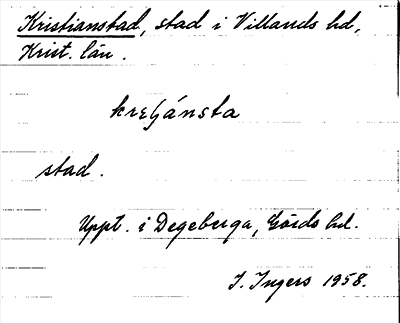 Kristianstad, stad i Villands hd,
Krist. län.
kreɧánsta
stad.
Uppt. i Degeberga, Gärds hd.
I. Ingers 1958.